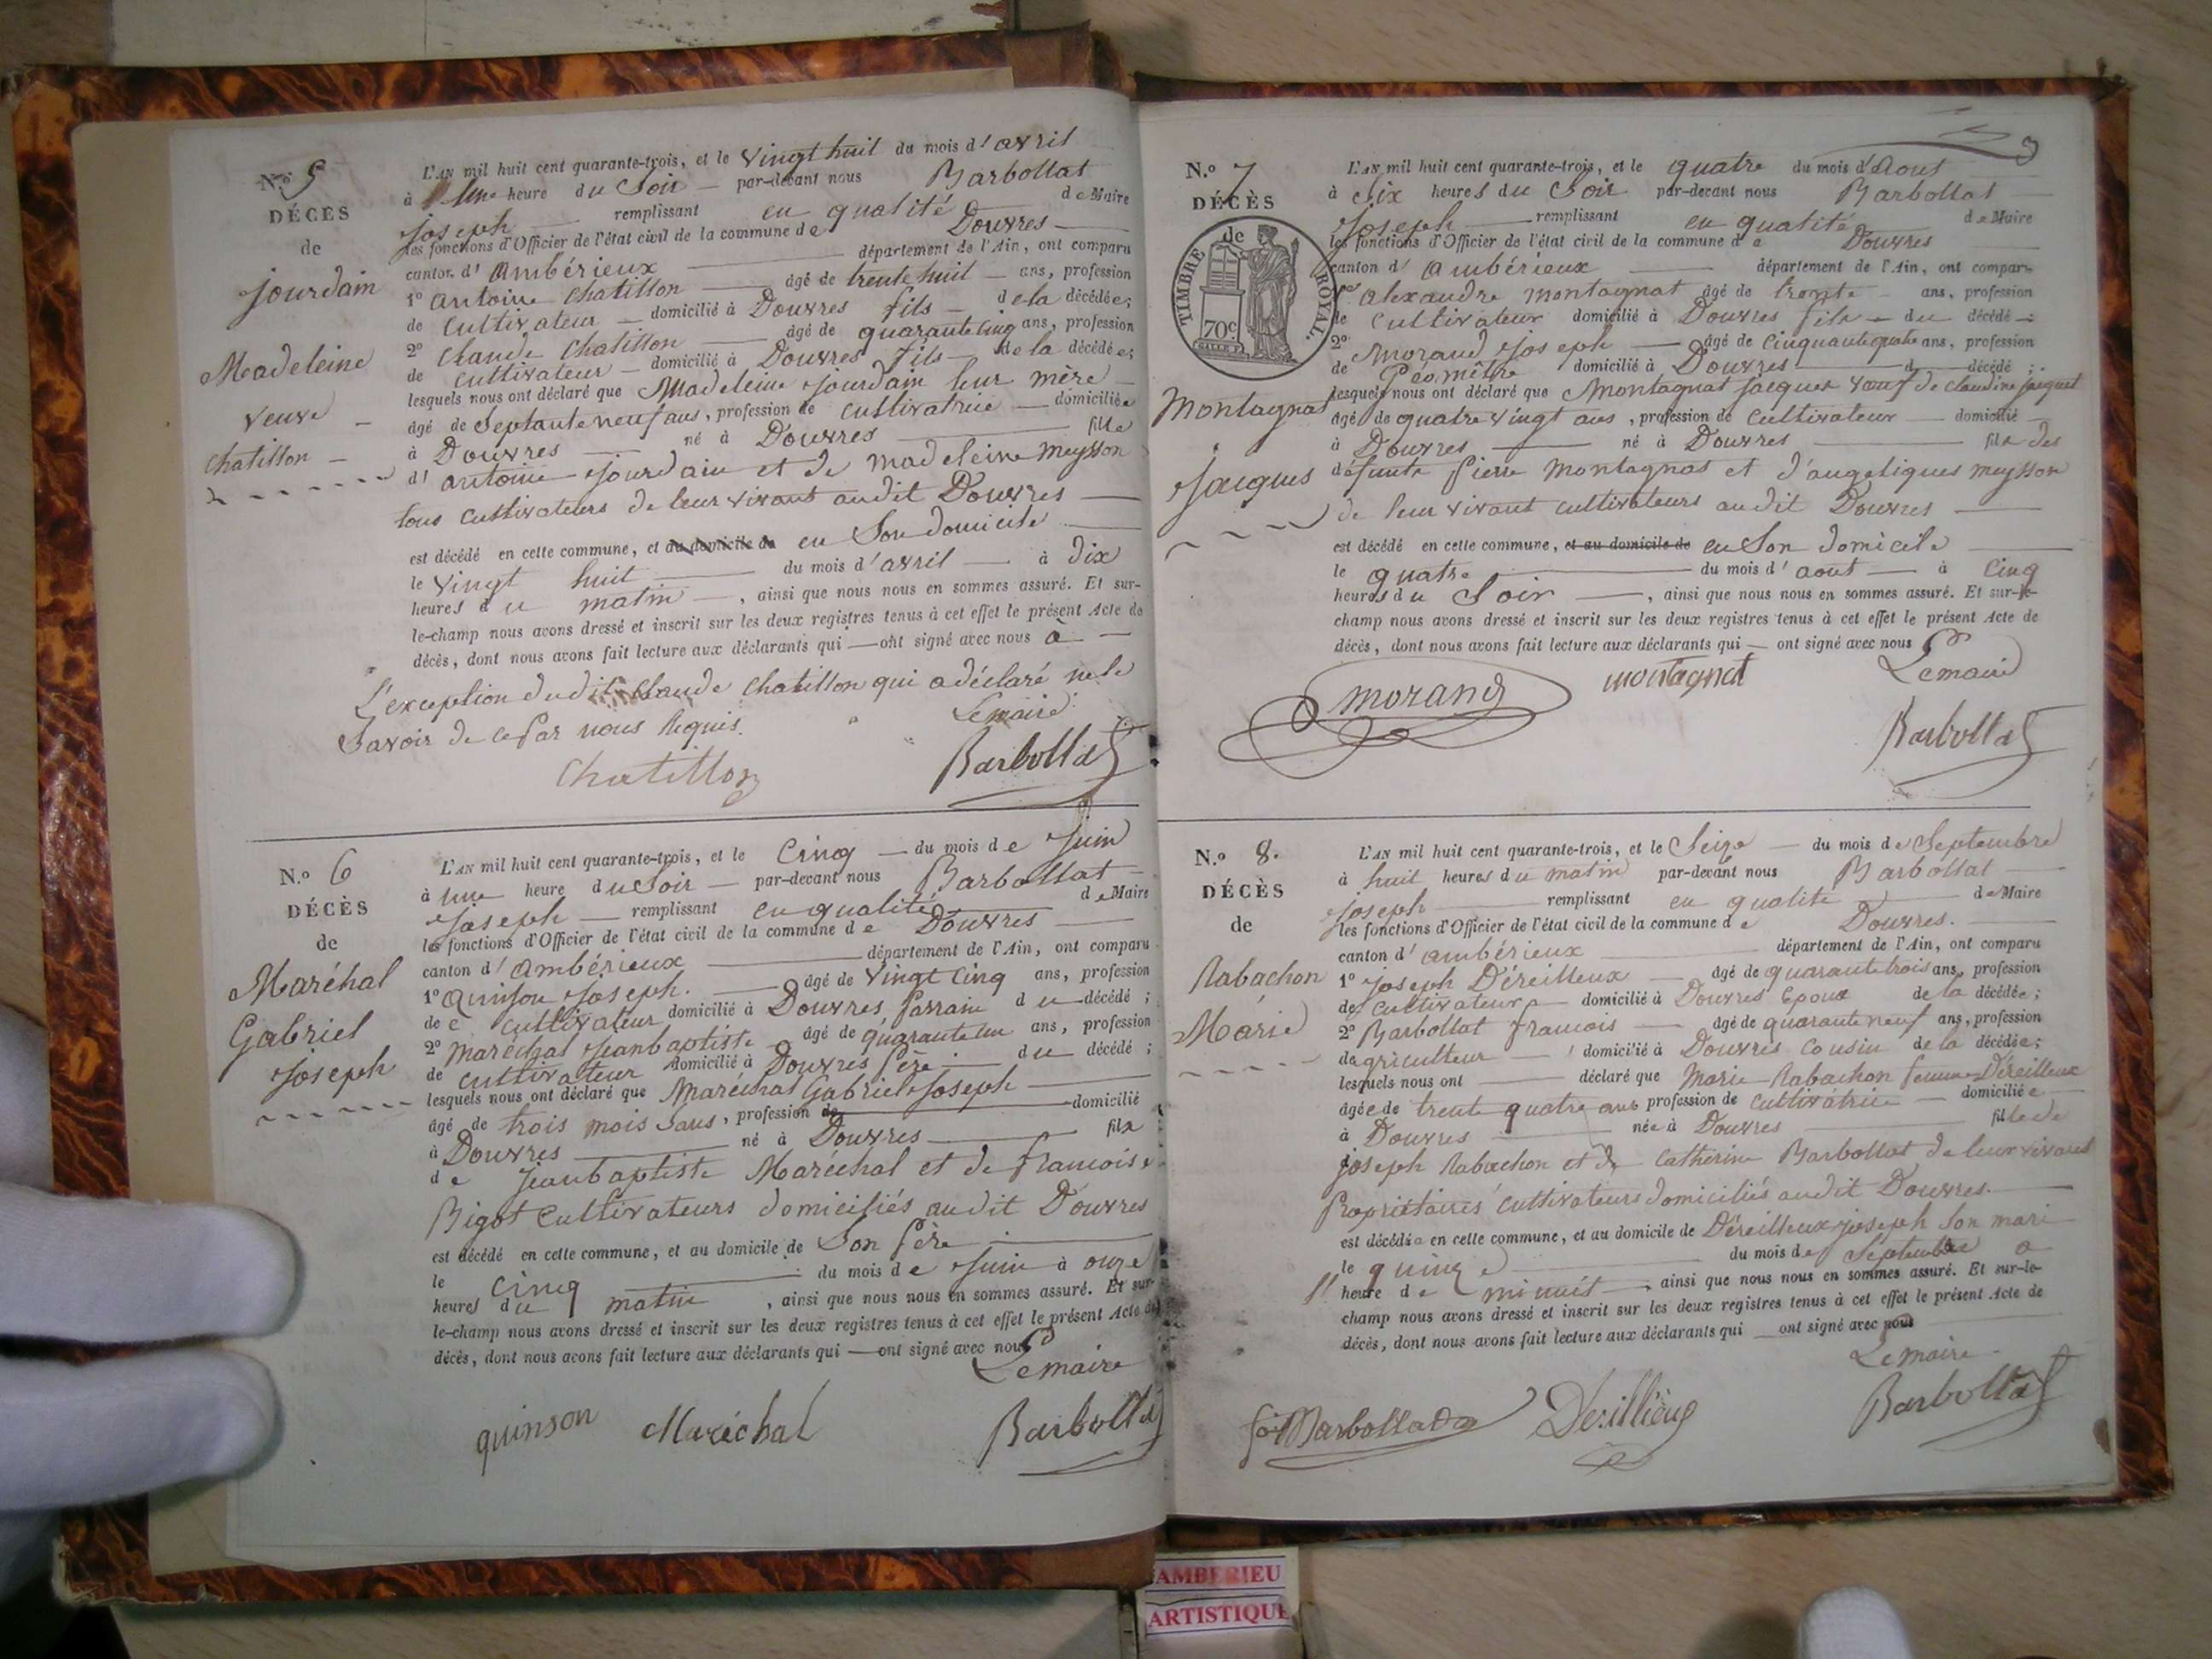 N.o 5
DÉCES
de
Jourdain
Madeleine
veuve
Chatillon
L'AN mil huit cent quarante-trois, et le vingt huit du mois d'avril
à Une heure du Soir par-devant nous Barbollat
Joseph remplissant en qualité de Maire
les fonctions d'Officier de l'état civil de la commune de Douvres
canton d'Ambérieux département de l'Ain, ont comparu
1o antoine Chatillon âgé de trente huit ans, profession
de Cultivateur domicilié à Douvres fils de la décédée;
2o Claude Chatillon âgé de quarante cinq ans, profession
de cultivateur domicilié à Douvres fils de la décédée;
lesquels nous ont déclaré que Madeleine Jourdain leur mère
âgé de Septante neuf ans, profession de cultivatrice domiciliée
à Douvres né à Douvres fille
d'antoine Jourdain et de madeleine meysson
tous cultivateurs de leur vivant audit Douvres
est décédé en cette commune, et au domicile de en Son domicile
le vingt huit du mois d'avril à dix
heures du matin, ainsi que nous nous en sommes assuré. Et sur-
le-champ nous avons dressé et inscrit sur les deux registres tenus à cet effet le présent Acte de
décès, dont nous avons fait lecture aux déclarants qui ont signé avec nous à
L'exception dudit Claude Chatillon qui a déclaré ne le
Savoir de ce par nous Requis.
Le maire
Chatillon Barbollat
N.o 6
DÉCÈS
de
Maréhal
Gabriel
Joseph
L'AN mil huit cent quarante-trois, et le Cinq du mois de Juin
à une heure du Soir par-devant nous Barbollat
Joseph remplissant en qualité de Maire
les fonctions d'Officier de l'état civil de la commune de Douvres
canton d'Ambérieux département de l'Ain, ont comparu
1o Quinson Joseph. âgé de vingt cinq ans, profession
de cultivateur domicilié à Douvres, parrain du décédé;
2o Maréchal Jeanbaptiste âgé de quarante un ans, profession
de cultivateur domicilié à Douvres père du décédé;
lesquels nous ont déclaré que Maréchal Gabriel Joseph
âgé de trois mois Sans, profession de domicilié
à Douvres né à Douvres fils
de Jeanbaptiste Maréchal et de francoise
Bigot Cultivateurs domiciliés audit Douvres
est décédé en cette commune, et au domicile de Son père
le cinq du mois de Juin à onze
heures du matin, ainsi que nous nous en sommes assuré. Et sur-
le-champ nous avons dressé et inscrit sur les deux registres tenus à cet effet le présent Acte de
décès, dont nous avons fait lecture aux déclarants qui ont signé avec nous
Le maire
quinson Maréchal Barbollat
N.o 7
DÉCÈS
de
TIMBRE ROYAL.
70c
Montagnat
Jacques
L'AN mil huit cent quarante-trois, et le quatre du mois d'Aout
à Six heures du Soir par-devant nous Barbollat
Joseph remplissant en qualité de Maire
les fonctions d'Officier de l'état civil de la commune de Douvres
canton d'Ambérieux département de l'Ain, ont comparu
1o Alexandre montagnat âgé de trente ans, profession
de Cultivateur domicilié à Douvres fils du décédé;
2o Morand Joseph âgé de Cinquante quatre ans, profession
de Géomètre domicilié à Douvres d décédé;
lesquels nous ont déclaré que Montagnat Jacques veuf de claudine Jacquet
âgé de quatre vingt ans, profession de Cultivateur domicilié
à Douvres né à Douvres fils des
défunts Pierre Montagnat et d'angeliques meysson
de leur vivant cultivateurs audit Douvres
est décédé en cette commune, et au domicile de en Son domicile
le quatre du mois d'aout à Cinq
heures du Soir, ainsi que nous nous en sommes assuré. Et sur-le-
champ nous avons dressé et inscrit sur les deux registres tenus à cet effet le présent Acte de
décès, dont nous avons fait lecture aux déclarants qui ont signé avec nous
morand montagnat Le maire
Barbollat
N.o 8.
DÉCÈS
de
Rabachon
Marie
L'AN mil huit cent quarante-trois, et le Seize du mois de Septembre
à huit heures du matin par-devant nous Barbollat
Joseph remplissant en qualité de Maire
les fonctions d'Officier de l'état civil de la commune de Douvres.
canton d'ambérieux département de l'Ain, ont comparu
1o Joseph Déreilleux âgé de quarante trois ans, profession
de Cultivateur domicilié à Douvres Epoux de la décédée;
2o Barbollat francois âgé de quarante neuf ans, profession
dagriculteur domicilié à Douvres Cousin de la décédée;
lesquels nous ont déclaré que Marie Rabachon femme Déreilleux
âgée de trente quatre ans profession de cultivatrice domiciliée
à Douvres née à Douvres fille de
joseph Rabachon et de Catherine Barbollat de leur vivant
Propriétaires cultivateurs domiciliés audit Douvres.
est décédée en cette commune, et au domicile de Déreilleux joseph Son mari
le quinze du mois de Septembre a
11 heure de minuit, ainsi que nous nous en sommes assuré. Et sur-le-
champ nous avons dressé et inscrit sur les deux registres tenus à cet effet le présent Acte de
décès, dont nous avons fait lecture aux déclarants qui ont signé avec nous
Le maire
Barbollat
AMBERIEU
ARTISTIQUE